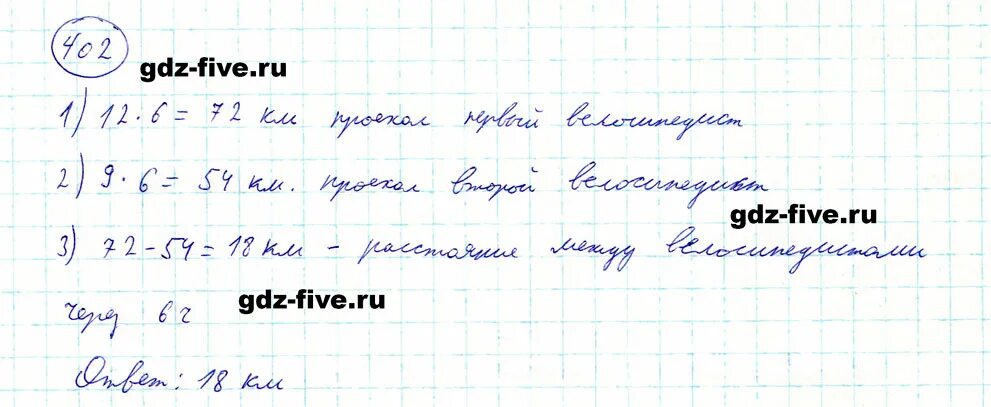 402
gdz-five.ru
1) 12 · 6 = 72 км проехал первый велосипедист
2) 9 · 6 = 54 км. проехал второй велосипедист
gdz-five.ru
3) 72 - 54 = 18 км - расстояние между велосипедистами
gdz-five.ru
через 6 ч
Ответ: 18 км